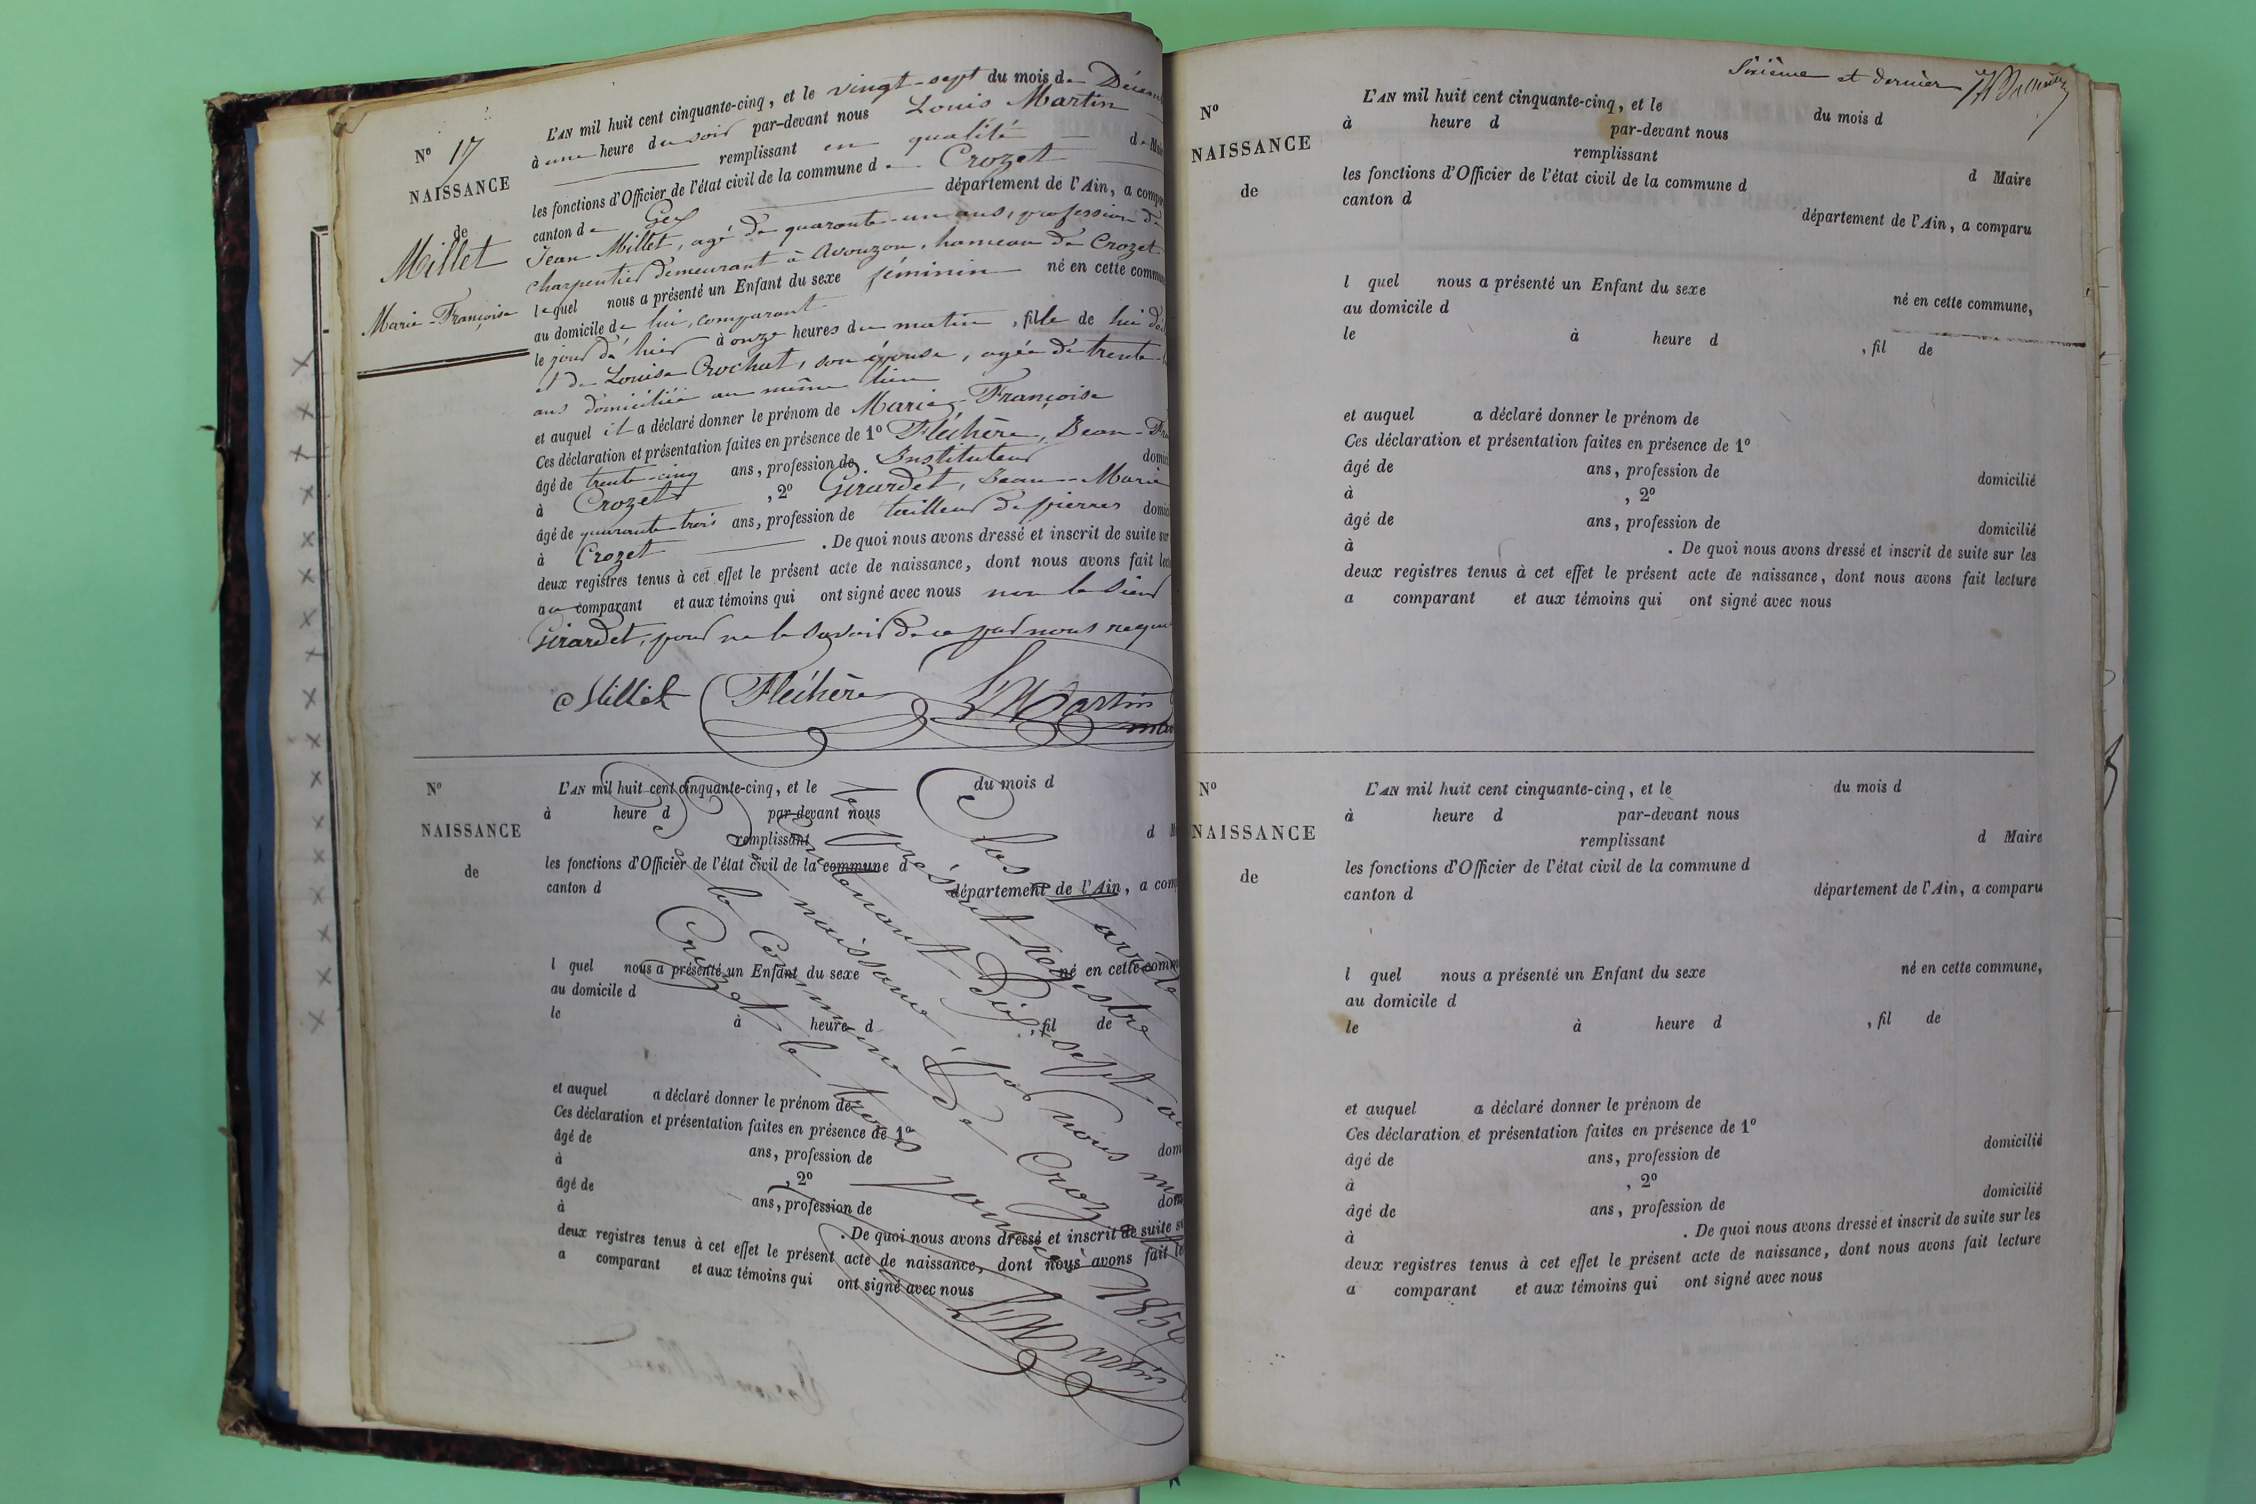 N° 17
NAISSANCE
de
Millet
Marie-Françoise
L'AN mil huit cent cinquante-cinq, et le vingt-sept du mois de Décem
à une heure du soir par-devant nous Louis Martin
remplissant en qualité de Mai
les fonctions d'Officier de l'état civil de la commune de Crozet
canton de Gex département de l'Ain, a compa
Jean Millet, agé de quarante-un ans, profession de
charpentier demeurant à Avouzon, hameau de Crozet
lequel nous a présenté un Enfant du sexe féminin né en cette commu
au domicile de lui, comparant
le jour d'hier à onze heures du matin, fille de lui dé
et de Louise Crochat, son épouse, agée de trente
ans domiciliée au même lieu
et auquel il a déclaré donner le prénom de Marie-Françoise
Ces déclaration et présentation faites en présence de 1° Fléchère, Jean-Fra
âgé de trente-cinq ans, profession de Instituteur domici
à Crozet, 2° Girardet, Jean-Marie
âgé de quarante-trois ans, profession de tailleur de pierres domici
à Crozet. De quoi nous avons dressé et inscrit de suite sur
deux registres tenus à cet effet le présent acte de naissance, dont nous avons fait lec
au comparant et aux témoins qui ont signé avec nous non le sieur
Girardet, pour ne le savoir de ce par nous requ
Millet Fléchère L Martin
mai
N°
NAISSANCE
de
L'AN mil huit cent cinquante-cinq, et le du mois d
à heure d par-devant nous
remplissant d M
les fonctions d'Officier de l'état civil de la commune d
canton d département de l'Ain, a com
l quel nous a présenté un Enfant du sexe né en cette comm
au domicile d
le à heure d, fil de
et auquel a déclaré donner le prénom de
Ces déclaration et présentation faites en présence de 1°
âgé de ans, profession de dom
à, 2°
âgé de ans, profession de dom
à. De quoi nous avons dressé et inscrit de suite su
deux registres tenus à cet effet le présent acte de naissance, dont nous avons fait le
a comparant et aux témoins qui ont signé avec nous
Clos
le présent registre
contenant dix sept
naissance, par nous
de la Commune de Crozet
Crozet le trois
185
L Martin
Sixième et dernier
N°
NAISSANCE
de
L'AN mil huit cent cinquante-cinq, et le du mois d
à heure d par-devant nous
remplissant d Maire
les fonctions d'Officier de l'état civil de la commune d
canton d département de l'Ain, a comparu
l quel nous a présenté un Enfant du sexe né en cette commune,
au domicile d
le à heure d, fil de
et auquel a déclaré donner le prénom de
Ces déclaration et présentation faites en présence de 1°
âgé de ans, profession de domicilié
à, 2°
âgé de ans, profession de domicilié
à. De quoi nous avons dressé et inscrit de suite sur les
deux registres tenus à cet effet le présent acte de naissance, dont nous avons fait lecture
a comparant et aux témoins qui ont signé avec nous
N°
NAISSANCE
de
L'AN mil huit cent cinquante-cinq, et le du mois d
à heure d par-devant nous
remplissant d Maire
les fonctions d'Officier de l'état civil de la commune d
canton d département de l'Ain, a comparu
l quel nous a présenté un Enfant du sexe né en cette commune,
au domicile d
le à heure d, fil de
et auquel a déclaré donner le prénom de
Ces déclaration et présentation faites en présence de 1°
âgé de ans, profession de domicilié
à, 2°
âgé de ans, profession de domicilié
à. De quoi nous avons dressé et inscrit de suite sur les
deux registres tenus à cet effet le présent acte de naissance, dont nous avons fait lecture
a comparant et aux témoins qui ont signé avec nous